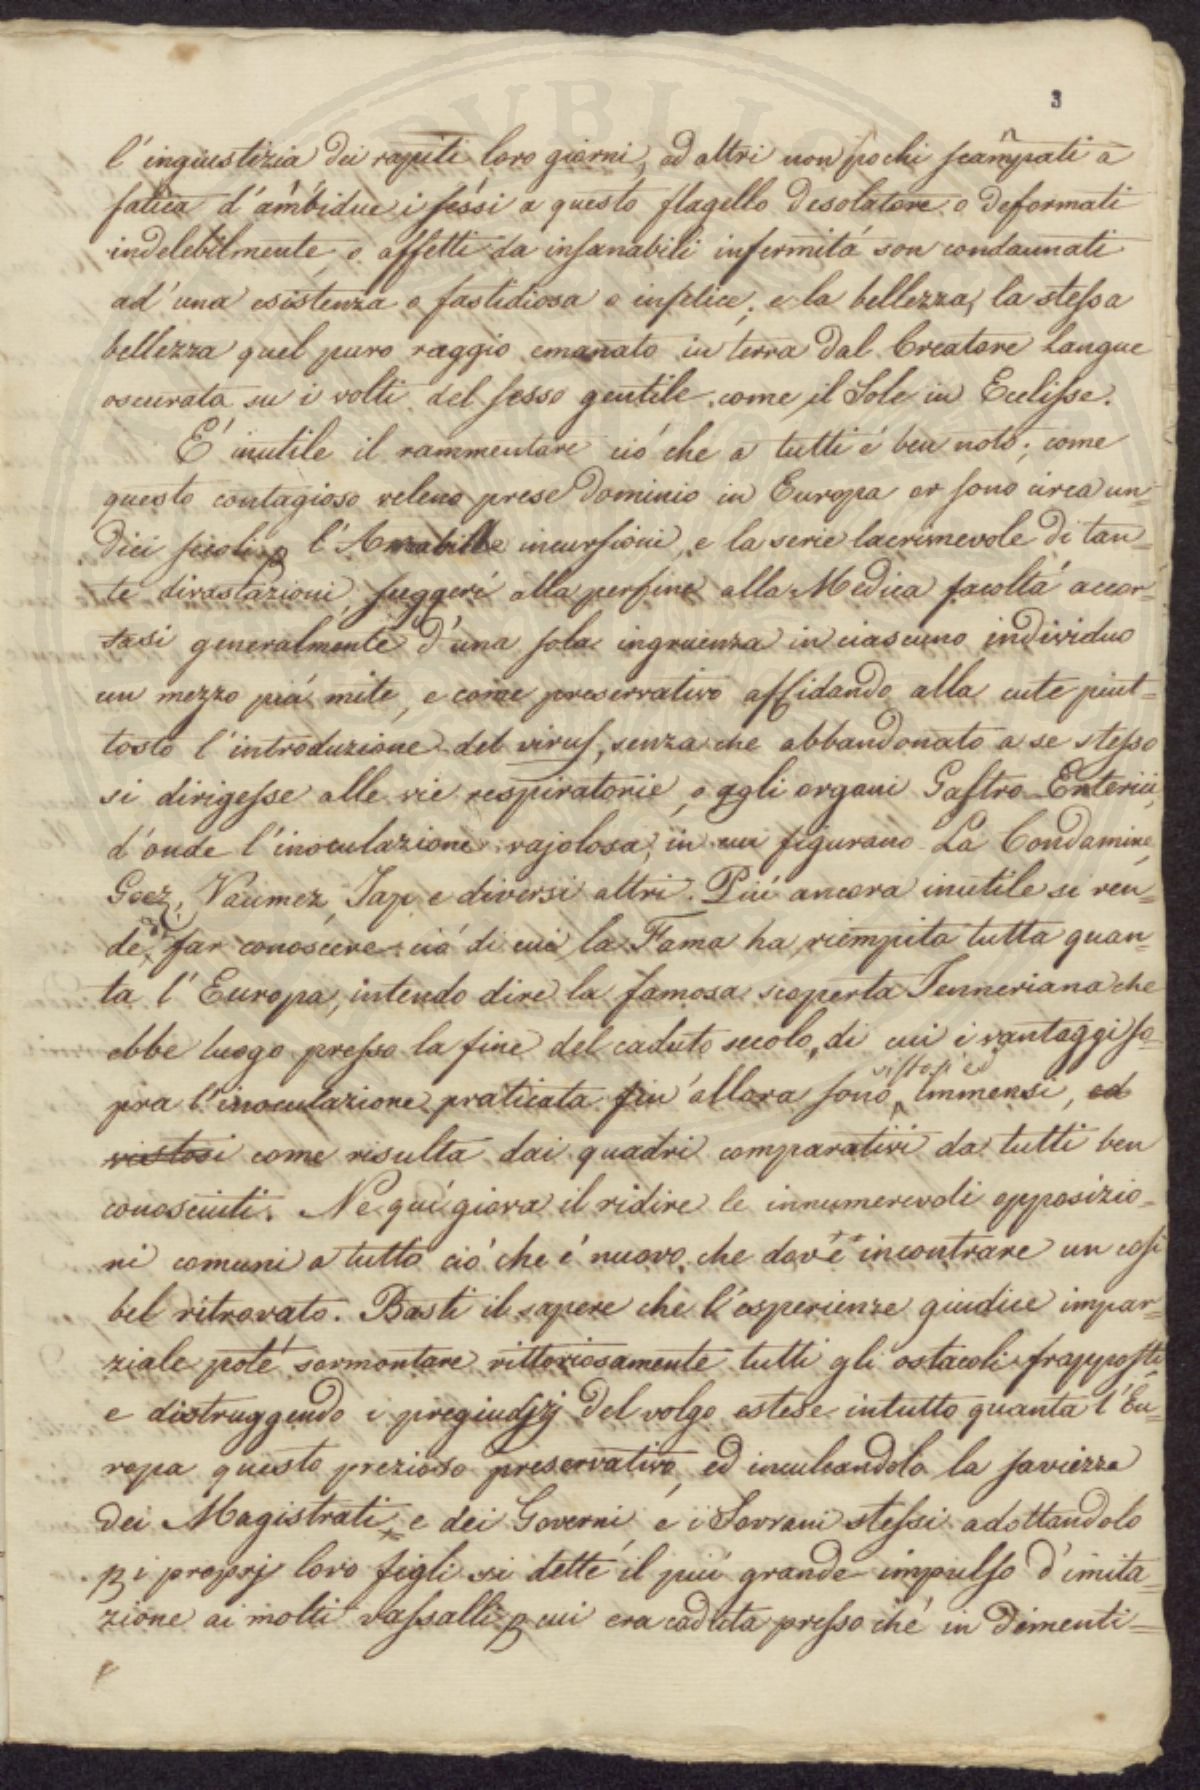 3
l'ingiustizia dei rapiti loro giorni, ad altri non pochi scampati a
fatica d'ambidue i sessi a questo flagello desolatore o deformati
indelebilmente, o affetti da insanabili infermitá son condannati
ad' una esistenza o fastidiosa o infelice; e la bellezza, la stessa
bellezza quel puro raggio emanato in terra dal Creatore Langue
oscurata su i volti del sesso gentile come il Sole in Ecclisse.
É inutile il rammentare ció che a tutti é ben noto; come
questo contagioso veleno prese dominio in Europa or sono circa un=
dici secoli, p l' incursioni, e la serie lacrimevole di tan=
te divastazioni, suggerí alla perfine alla Medica facoltá accor=
tasi generalmente d'una sola ingruenza in ciascuno individuo
un mezzo piú mite, e come preservativo affidando alla cute piut=
tosto l'introduzione del virus, senza che abbandonato a se stesso
si dirigesse alle vie respiratorie, o agli organi Gastro-Enterici,
d'onde l'inoculazione vajolosa, in cui figurano La Condamine,
Goez, Vaumez, Jap, e diversi altri. Piú ancora inutile si ren=
de, far conoscere ció di cui la Fama ha riempita tutta quan=
ta l'Europa, intendo dire la famosa scoperta Jenneriana che
ebbe luogo presso la fine del caduto secolo, di cui i vantaggi so=
pra l'inoculazione praticata fin'allora sono vistosi ed immensi, ed
vistosi come risulta dai quadri comparativi da tutti ben
conosciuti. Ne quí giova il ridire le innumerevoli opposizio=
ni comuni a tutto ció che é nuovo, che dové incontrare un cosí
bel ritrovato. Basti il sapere che l'esperienze giudice impar=
ziale poté sormontare vittoriosamente tutti gli ostacoli frapposti
e distruggendo i pregiudizj del volgo estese in tutto quanta l'Eu=
ropa questo prezioso preservativo, ed inculcandolo la saviezza
dei Magistrati, e dei Governi, e i Sovrani stessi adottandolo
p i proprj loro figli si dette il piú grande impulso d'imita=
zione ai molti vassalli, p cui era caduta presso ché in dimenti=